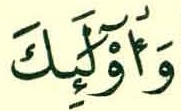 وَأُوْلَٰٓئِكَ